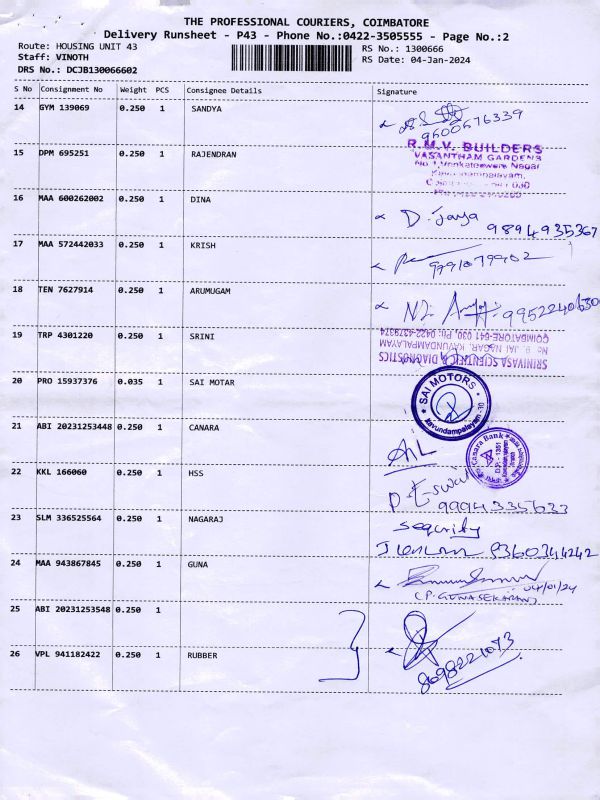 THE PROFESSIONAL COURIERS, COIMBATORE
Delivery Runsheet - P43 - Phone No.:0422-3505555 - Page No.:2
Route: HOUSING UNIT 43
RS No.: 1300666
Staff: VINOTH
RS Date: 04-Jan-2024
DRS No.: DCJB130066602
S No Consignment No Weight PCS Consignee Details Signature
14 GYM 139069 0.250 1 SANDYA
9500576339
R.M.V. BUILDERS
VASANTHAM GARDENS
15 DPM 695251 0.250 1 RAJENDRAN
No.1, Venkateswara Nagar
16 MAA 600262002 0.250 1 DINA
D. Jaya 9894935367
17 MAA 572442033 0.250 1 KRISH
9791079902
18 TEN 7627914 0.250 1 ARUMUGAM
9952240630
19 TRP 4301220 0.250 1 SRINI
SRINIVASA SCIENTIFIC & DIAGNOSTICS
No 9, JAI NAGAR, KAVUNDAMPALAYAM
COIMBATORE-641 030. PH: 0422-4379374
20 PRO 15937376 0.035 1 SAI MOTAR
SAI MOTORS
Kavundampalayam-30
21 ABI 20231253448 0.250 1 CANARA
Canara Bank
D.P.-1361
22 KKL 166060 0.250 1 HSS
9994335633
23 SLM 336525564 0.250 1 NAGARAJ
security
9360344242
24 MAA 943867845 0.250 1 GUNA
04/01/24
(P. GUNASEKARAN)
25 ABI 20231253548 0.250 1
26 VPL 941182422 0.250 1 RUBBER
8098221073